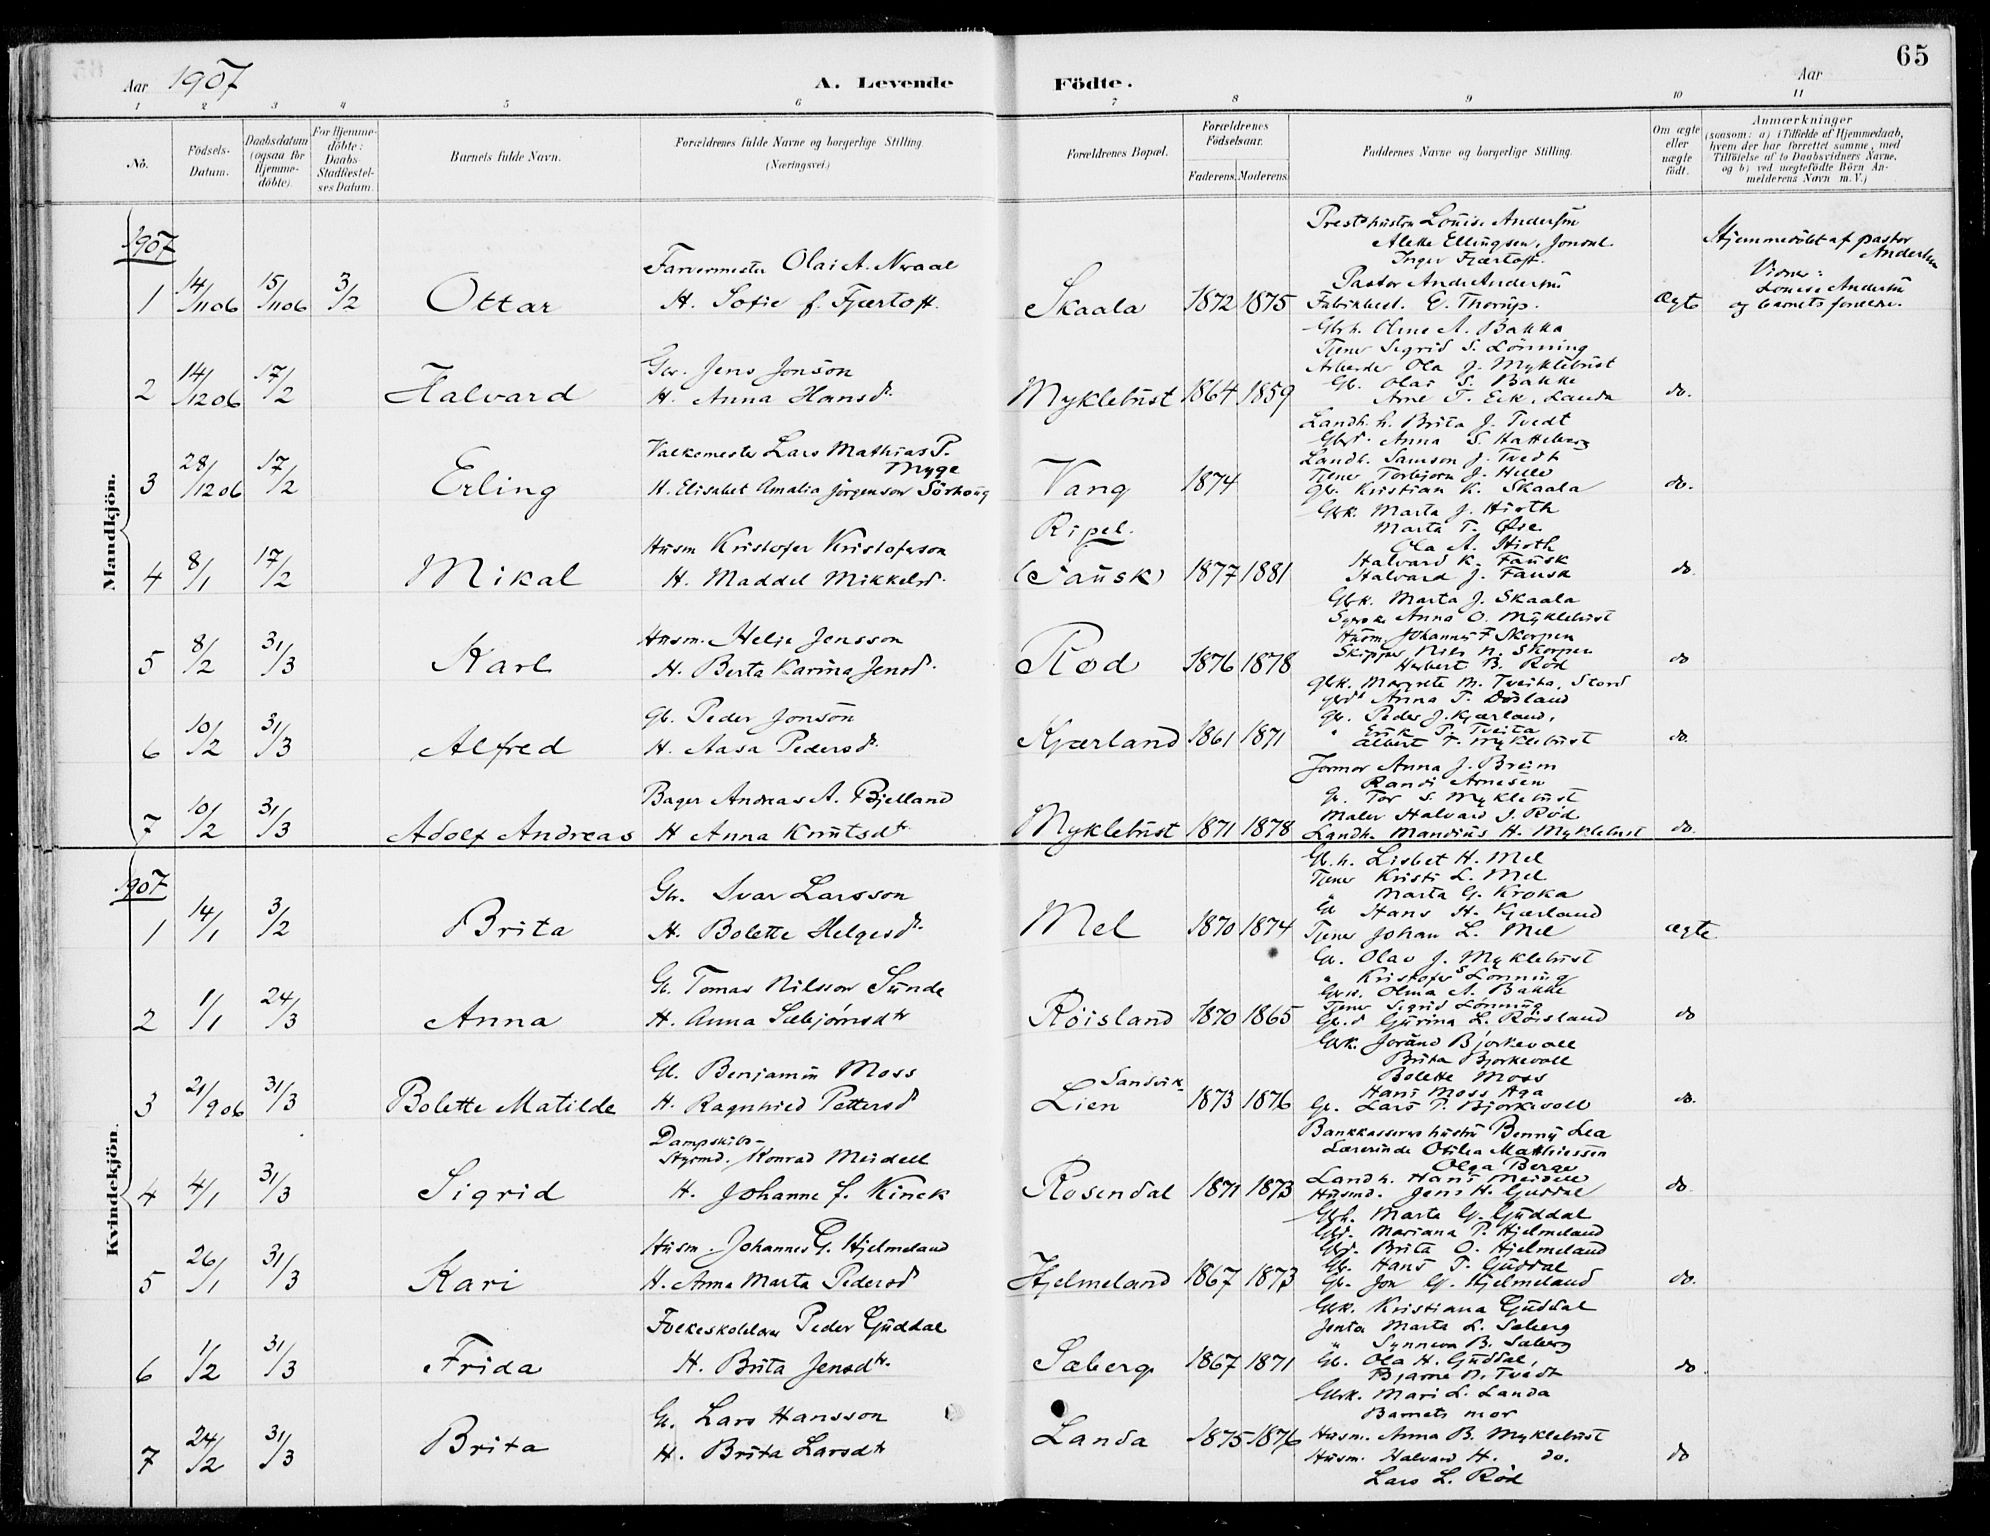 65
Aar 1907 A. Levende Födte. Aar
1 2 3 4 5 6 7 8 9 10 11
Nô.
Födsels-Datum.
Daabsdatum (ogsaa for Hjemme-döbte).
For Hjemme-döbte: Daabs-Stadfæstel-ses Datum.
Barnets fulde Navn.
Forældrenes fulde Navne og borgerlige Stilling.
(Næringsvei.)
Forældrenes Bopæl.
Forældrenes Födselsaar.
Faderens. Moderens.
Faddernes Navne og borgerlige Stilling.
Om ægte eller uægte födt.
Anmærkninger
(saasom: a) i Tilfælde af Hjemmedaab,
hvem der har forrettet samme, med
Tilföielse af to Daabsvidners Navne,
og b) ved uægtefödte Börn An-
melderens Navn m. V.)
Mandkjön.
1907
1 14/11 06 15/11 06 3/2 Ottar
Farvermester Olai A. Nvaal
H. Sofie f. Fjærtoft.
Skaala 1872 1875
Prestehustru Louise Andersen
Alette Ellingsen, Jondal
Inger Fjærtoft.
Pastor Andr Andersen
Fabrikbest. E. Thorup.
Ægte
Hjemmedöbt af pastor
Andersen
Vidner:
Louise Andersen
og barnets forældre.
2 14/12 06 17/2 Halvard
Gbr. Jens Jonson
H. Anna Hansd.
Myklebust 1864 1859
Gbrh. Oline A. Bakka
Tjener Sigrid S. Lönning
Arbeider Ola J. Myklebust
Gb. Olai S. Bakke
Arne T. Eik, Landa
do.
3 28/12 06 17/2 Erling
Valkemester Lars Mathias P.
Myge
H. Elisabet Amalia Jörgensen Sörhoug
Vang 1874
Landh. h. Brita J. Tvedt
Gbrd. Anna S. Hatteberg
Landh. Samson J. Tvedt
Tjener Torbjörn J. Helle
Gb. Kristian K. Skaala
do.
4 8/1 17/2 Mikal
Husm Kristofer Kristoferson
H. Maddel Mikkelsd.
Ripel.
(Fausk) 1877 1881
Gbk. Marta J. Hioth
Marta T. Øie
Ola A. Hioth
Halvard K. Fausk
Halvard J. Fausk
do.
5 8/2 31/3 Karl
Husm. Helje Jensson
H. Berta Karina Jensd.
Rød 1876 1878
Gbk. Marta J. Skaala
Anna O. Myklebust
Husm. Johannes F Skorpen
Skipper Nils N. Skorpen
Herbert B. Rød
do
6 10/2 31/3 Alfred
Gb. Peder Jonson
H. Aasa Pedersd.
Kjærland 1861 1871
Gbk. Margrete M. Tveita, Stord
Gbrd. Anna T. Døsland
Gb. Peder J. Kjærland,
" Erik P. Tveita
Albert T. Myklebust
do.
7 10/2 31/3 Adolf Andreas
Bager Andreas A. Bjelland
H Anna Knutsdt.
Myklebust 1871 1878
Jormor Anna J. Breim
Randi Arnesen
Gb. Tor S. Myklebust
Maler Halvard J. Rød
Landh. Mandius H. Myklebust
do.
Kvindekjön.
1907
1 14/1 3/2 Brita
Gb. Ivar Larsson
H. Bolette Helgesd.
Mel 1870 1874
Gb. h. Lisbet H. Mel
Tjener Kristi L. Mel
" Marta G. Kroka
Gb Hans H. Kjærland
Tjener Johan L. Mel
ægte
2 1/1 24/3 Anna
Gb. Tomas Nilsson Sunde
H. Anna Sæbjörnsdt
Røisland 1870 1865
Gb. Olav J. Myklebust
" Kristofer S Lönning
Gbrk. Olina A. Bakke
Tjener Sigrid Lönning
Gb.d Gurina L. Røisland
do
3 21/9 06 31/3 Bolette Matilde
Gb. Benjamin Moss
H. Ragnhild Pettersd
Sandvik-
Lien 1873 1876
Gbk. Joränd Bjørkevoll
Brita Bjørkevoll
Bolette Moss
Hans Moss Aga
Gb. Lars P. Bjørkevoll
do.
4 4/1 31/3 Sigrid
Dampskibs-
Styrmd. Konrad Meidell
H. Johanne f. Kinck
Rosendal 1871 1873
Bankkassererhustru Benny Lea
Lærerinde Otilia Mathiessen
Olga Berge
Landh. Hans Meidell
Husmd. Jens H. Guddal
do
5 26/1 31/3 Kari
Husm. Johannes G. Hjelmeland
H. Anna Marta Pedersd
Hjelmeland 1867 1873
Gbrh. Marta G. Guddal
Gbd. Mariana P. Hjelmeland
Gbd. Brita O. Hjelmeland
Gb. Hans T. Guddal
Gb. Jon G. Hjelmeland
do.
6 1/2 31/3 Frida
Folkeskolelærer Peder Guddal
H. Brita Jensdt.
Sæberg 1867 1871
Gbk. Kristiana Guddal
Jenta Marta L. Sæberg
" Synneva B. Sæberg
Gb. Ola H. Guddal,
Bjarne N. Tvedt
do.
7 24/2 31/3 Brita
Gb. Lars Hansson
H. Brita Larsdt
Landa 1875 1876
Gbrk. Mari L. Landa
Barnets mor
Husm. Anna B. Myklebust
Husm. Halvard H. do.
Lars L. Rød
do